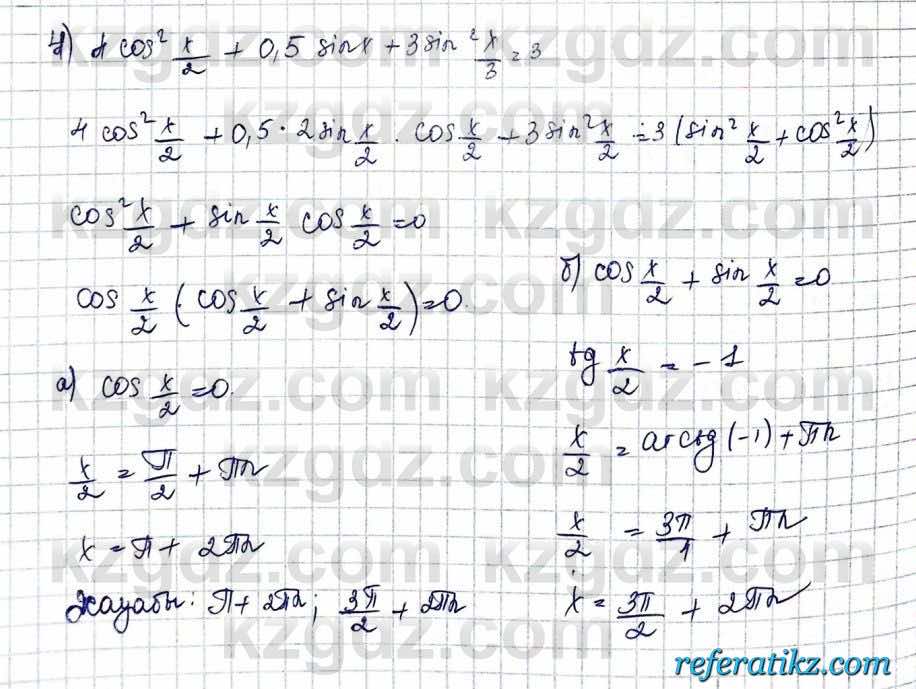 4) 4 cos² x/2 + 0,5 sinx + 3 sin² x/3 = 3
4 cos² x/2 + 0,5 · 2 sin x/2 · cos x/2 + 3 sin² x/2 = 3 (sin² x/2 + cos² x/2)
cos² x/2 + sin x/2 cos x/2 = 0
cos x/2 (cos x/2 + sin x/2) = 0.
а) cos x/2 = 0.
x/2 = π/2 + πn
x = π + 2πn
Жауабы: π + 2πn; 3π/2 + 2πn
б) cos x/2 + sin x/2 = 0
tg x/2 = - 1
x/2 = arcctg (-1) + πn
x/2 = 3π/1 + πn
x = 3π/2 + 2πn
kzgdz.com
referatikz.com